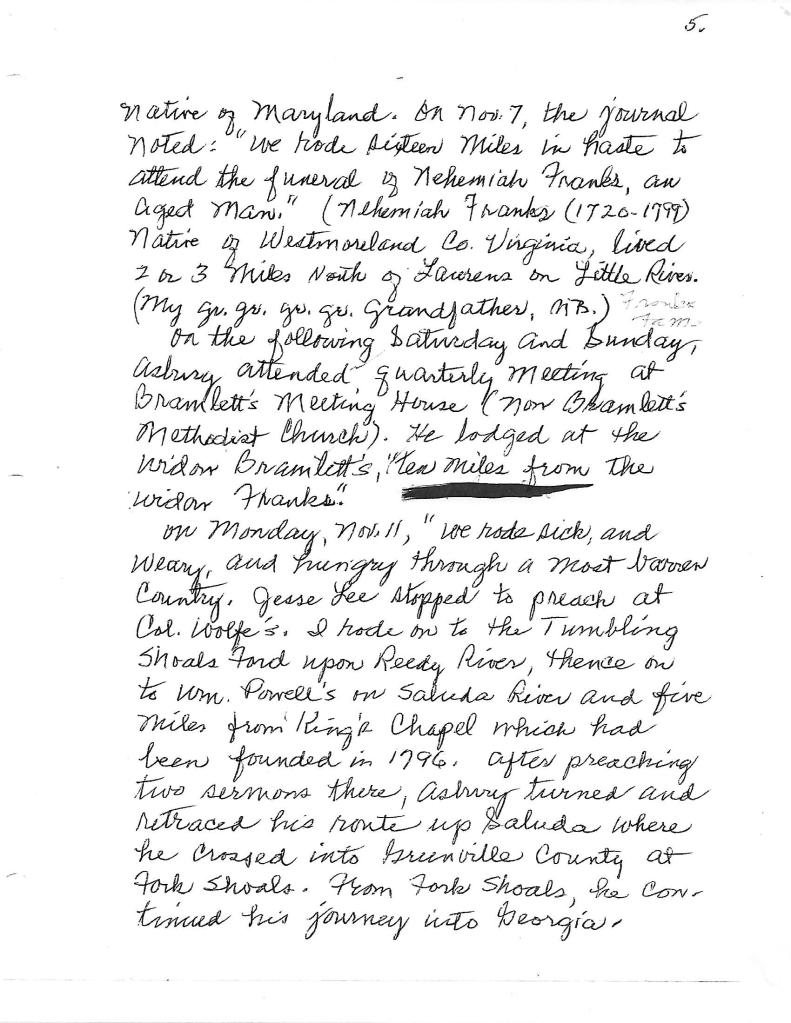 5.
Native of Maryland. On Nov. 7, the journal
Noted: "We rode sixteen Miles in haste to
attend the funeral of Nehemiah Franks, an
Aged Man." (Nehemiah Franks (1720-1799)
Native of Westmoreland Co. Virginia, lived
2 or 3 Miles North of Laurens on Little River.
(My gr. gr. gr. gr. Grandfather, MB.) Franks
Fam.
On the following Saturday and Sunday,
Asbury attended quarterly Meeting at
Bramlett's Meeting House (Now Bramlett's
Methodist Church). He lodged at the
Widow Bramlett's, "ten miles from the
widow Franks".
On Monday, Nov. 11, "We rode sick, and
Weary, and hungry through a most barren
Country. Jesse Lee stopped to preach at
Col. Wolfe's. I rode on to the Tumbling
Shoals Ford upon Reedy River, thence on
to Wm. Powell's on Saluda River and five
Miles from King's Chapel which had
been founded in 1796. After preaching
two sermons there, Asbury turned and
retraced his route up Saluda where
he crossed into Greenville County at
Fork Shoals. From Fork Shoals, he con-
tinued his journey into Georgia.